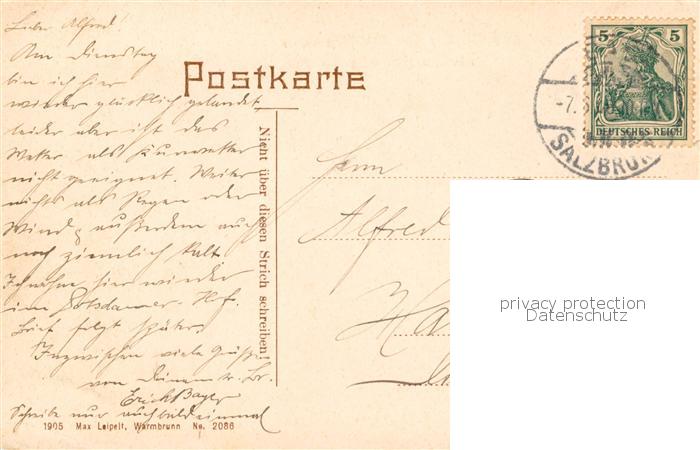 Lieber Alfred!
Am Dienstag
bin ich hier
wieder glücklich gelandet,
leider aber ist das
Wetter als Kurwetter
nicht geeignet. Weiter
nichts als Regen oder
Wind, außerdem auch
noch ziemlich kalt.
Ich wohne hier wieder
im Potsdamer Hof.
Brief folgt später.
Inzwischen viele Grüße
von Deinem tr. Br.
Erich Bayer
Schreibe nur auch bald einmal
1905 Max Leipelt, Warmbrunn No. 2086
Postkarte
Nicht über diesen Strich schreiben!
Herrn
Alfred
Ha
5 5
DEUTSCHES REICH
-7.
SALZBRUN
privacy protection
Datenschutz